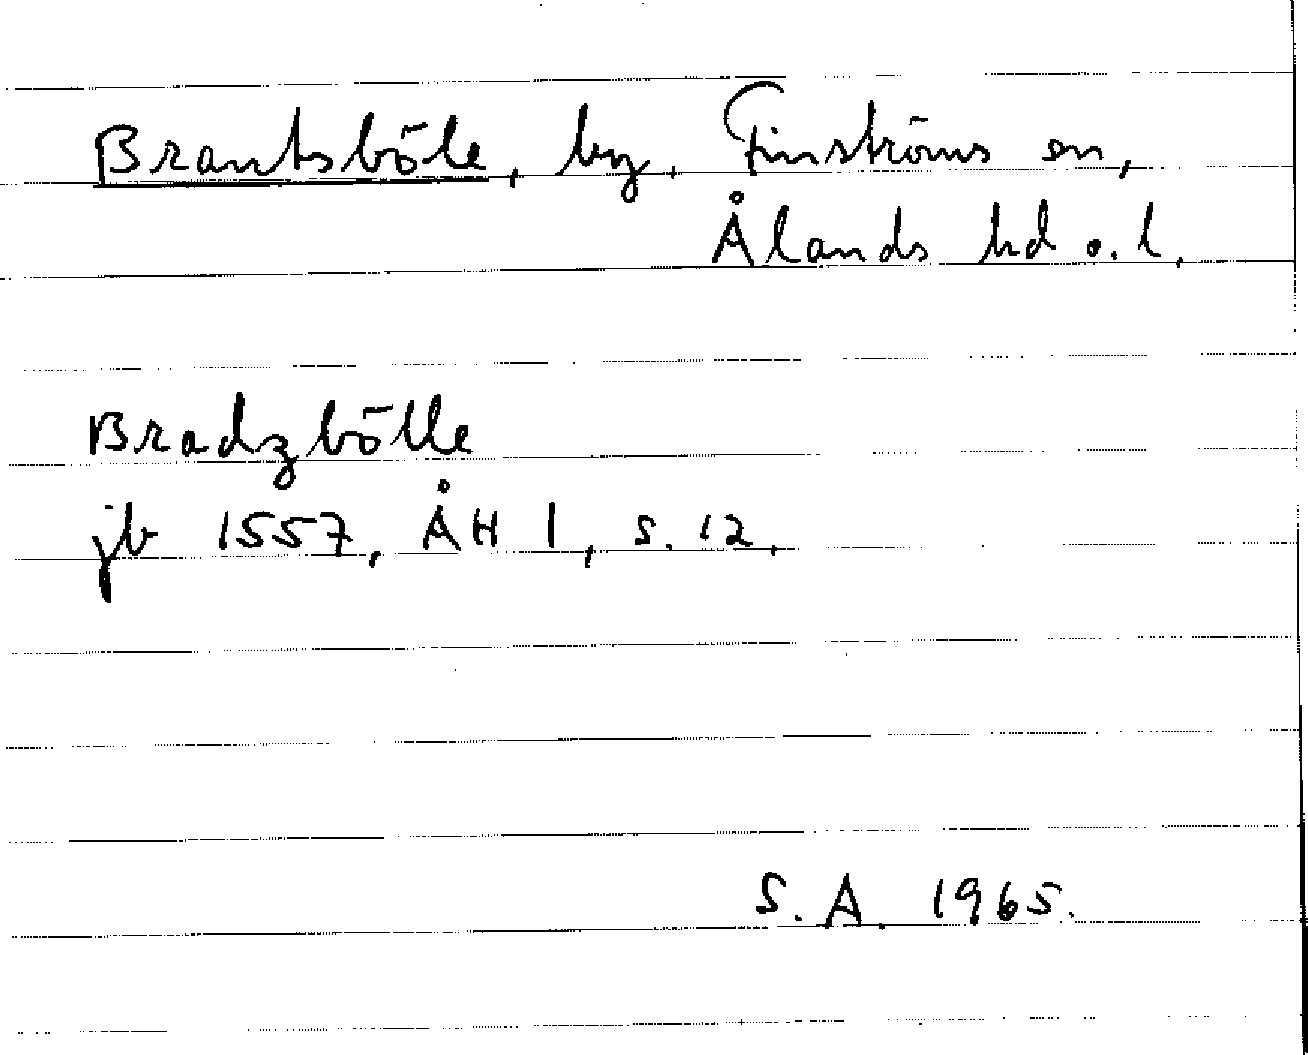 Brantsböle, by, Finströms sn,
Ålands hd o. l.
Bradzbölle
jb 1557, ÅH 1, s. 12.
S. A. 1965.